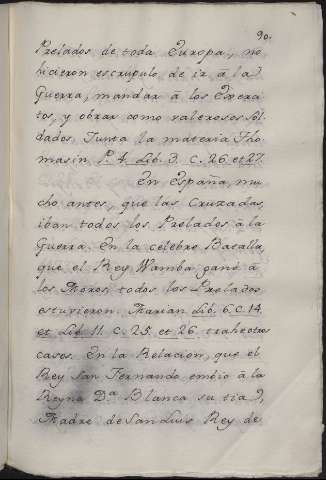 90.
Prelados de toda Europa, no
hicieron escrupulo de ir à la
Guerra, mandar à los Exerci
tos, y obrar como valerosos Sol
dados, Junta la materia Tho
masin P. 4. Lib. 3. C. 26 et 27.
En España, mu
cho antes, que las Cruzadas,
iban todos los Prelados à la
Guerra. En la celebre Batalla,
que el Rey Wamba ganó à
los Moros, todos los Prelados
estuvieron. Marian. Lib. 6. C. 14.
et Lib. 11. C. 25. et 26. trahe otros
casos. En la Relacion, que el
Rey San Fernando embio à la
Reyna D.ª Blanca su tia,
Madre de San Luis Rey de